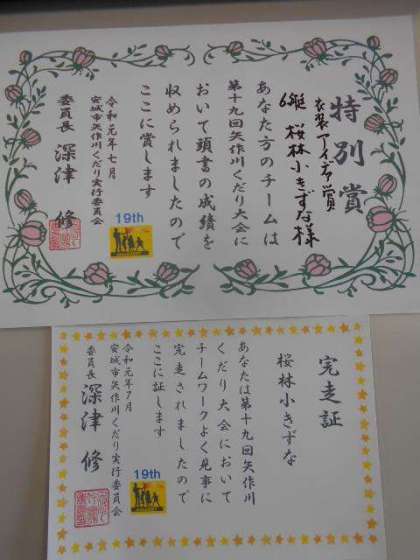 特別賞
衣装アイデア賞
6艇 桜林小きずな様
あなた方のチームは
第十九回矢作川くだり大会に
おいて頭書の成績を
収められましたので
ここに賞します
令和元年七月
安城市矢作川くだり実行委員会
委員長 深津 修
19th
完走証
桜林小きずな
あなたは第十九回矢作川
くだり大会において
チームワークよく見事に
完走されましたので
ここに証します
令和元年7月
安城市矢作川くだり実行委員会
委員長 深津 修
19th